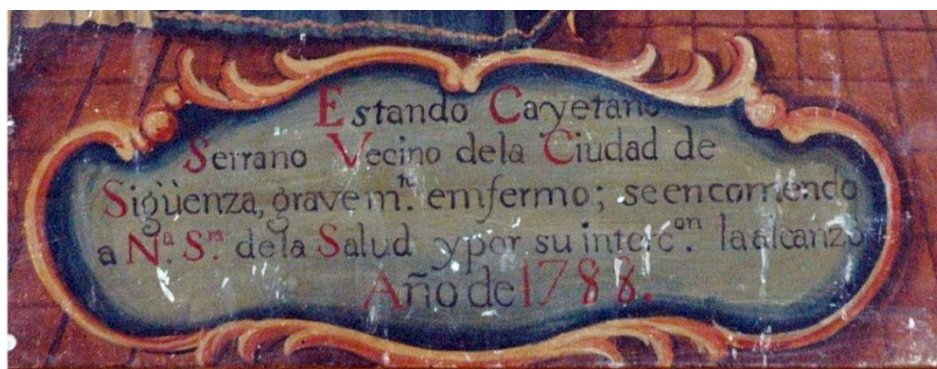 Estando Cayetano
Serrano Vecino dela Ciudad de
Sigüenza, gravem.te emfermo; se encomendo
a N.a S.ra de la Salud y por su interc.on la alcanzò
Año de 1788.